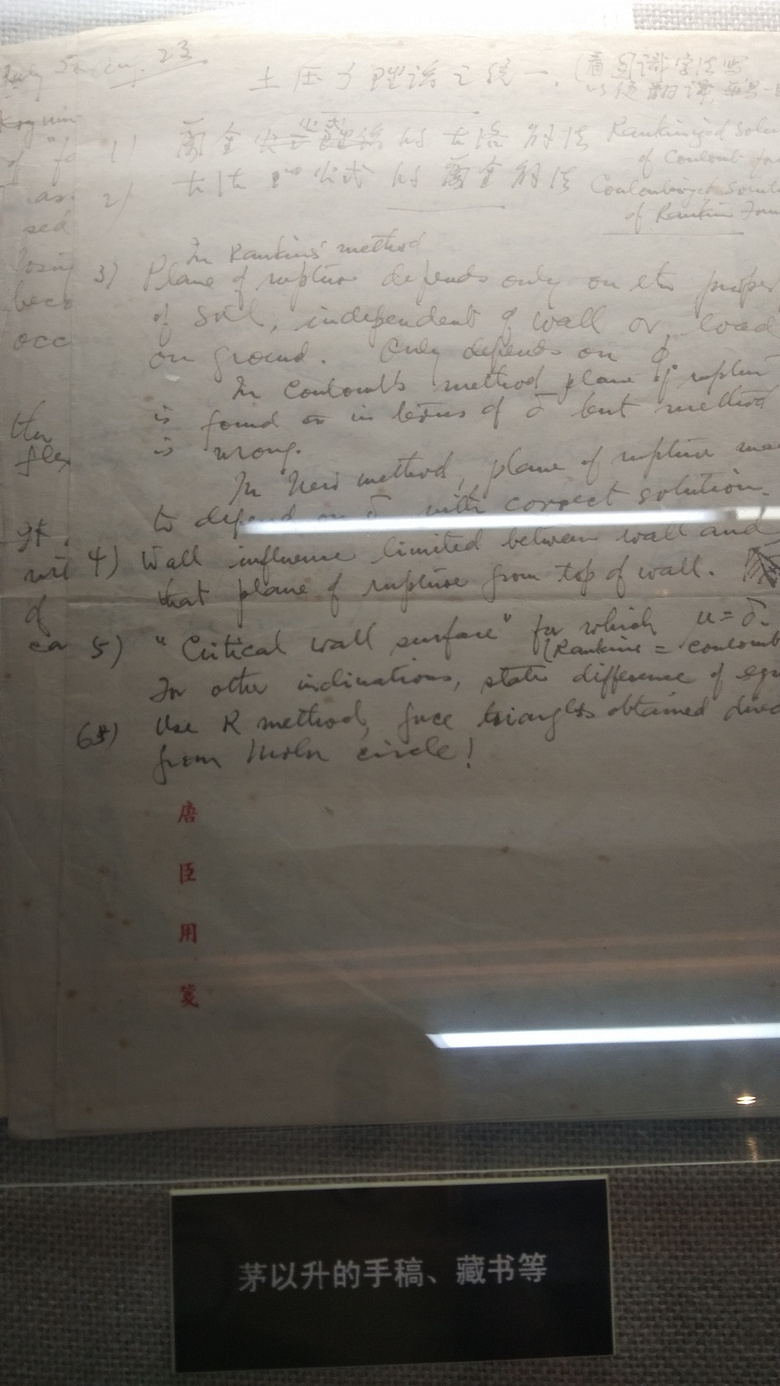 23
土压力理论之统一
1) 的 解法 Rankinized Solu
of Coulomb for
2) 公式的 解法 Coulombized Solut
of Rankine Form
In Rankine's method
3) Plane of rupture depends only on the proper
of soil, independent of wall or load
on ground. Only depends on ϕ
In Coulomb's method plane of rupture
is found in terms of δ but method
is wrong.
In New method, plane of rupture
to depend on δ with correct solution.
4) Wall influence limited between wall and
that plane of rupture from top of wall.
5) "Critical wall surface" for which u = δ.
(Rankine = Coulomb
For other inclinations, state difference of
6) Use R method, force triangles obtained direc
from Mohr circle!
of
ase
sed
losing
beco
occ
the
flex
of
ca
唐臣用箋
茅以升的手稿、藏书等